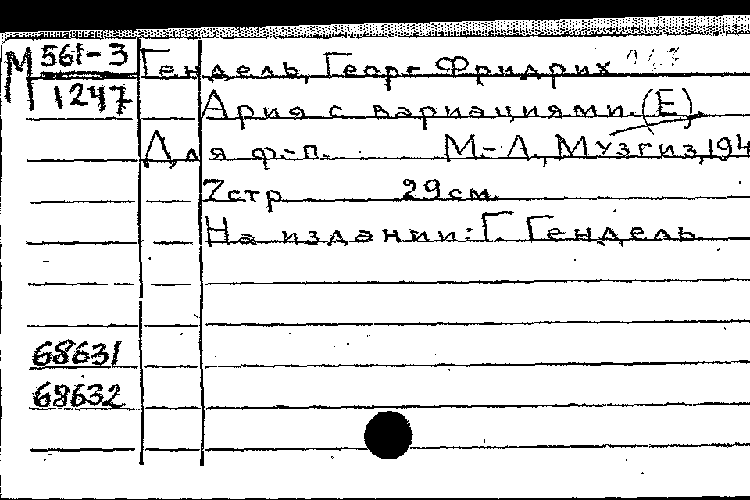 М 561-3 Гендель, Георг Фридрих
1247 Ария с вариациями. (E).
Для ф-п. М.-Л., Музгиз, 194
7стр 29см.
На издании: Г. Гендель
68631
68632